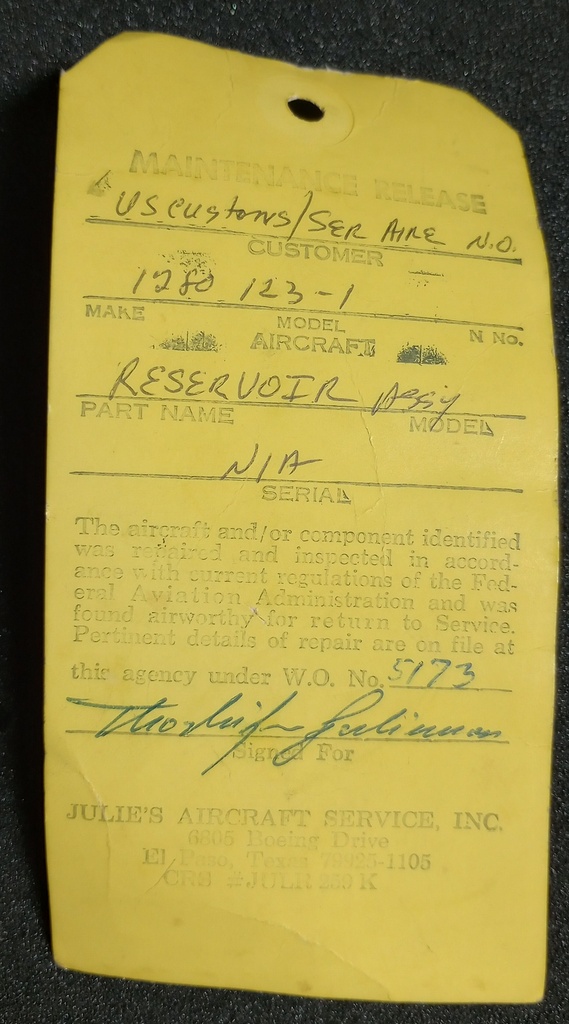 MAINTENANCE RELEASE
US Customs/SER AIRE N.O.
CUSTOMER
1280 123-1
MAKE MODEL N No.
AIRCRAFT
RESERVOIR Assy
PART NAME MODEL
N/A
SERIAL
The aircraft and/or component identified
was repaired and inspected in accord-
ance with current regulations of the Fed-
eral Aviation Administration and was
found airworthy for return to Service.
Pertinent details of repair are on file at
this agency under W.O. No. 5173
Signed For
JULIE'S AIRCRAFT SERVICE, INC.
6805 Boeing Drive
El Paso, Texas 79925-1105
CRS #JULR 259 K